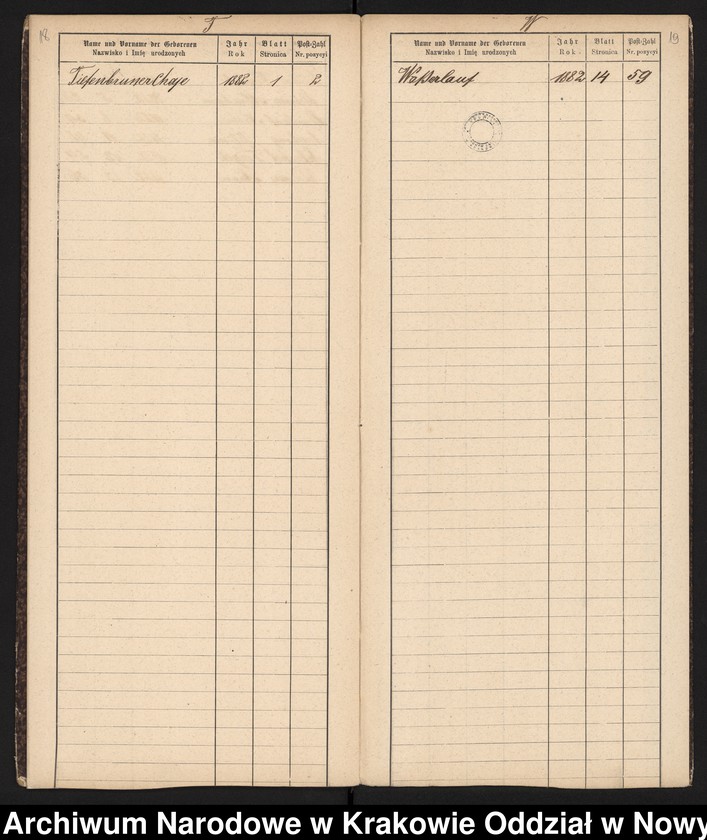 18
T
Name und Vorname der Geborenen
Nazwisko i Imię urodzonych
Jahr
Rok
Blatt
Stronica
Post-Zahl
Nr. pozycyi
Tiefenbruner Chaje 1882 1 2
19
W
Name und Vorname der Geborenen
Nazwisko i Imię urodzonych
Jahr
Rok
Blatt
Stronica
Post-Zahl
Nr. pozycyi
Waßerlauf 1882 14 59
Archiwum Narodowe w Krakowie Oddział w Nowy